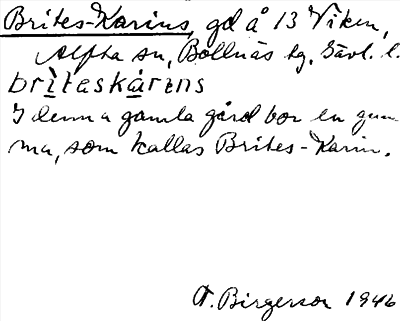 Brites-Karins, gd å 13 Viken,
Alfta sn, Bollnäs tg, Gävl. l.
britaskárins
I denna gamla gård bor en gum-
ma, som kallas Brites-Karin.
A. Birgerson 1946